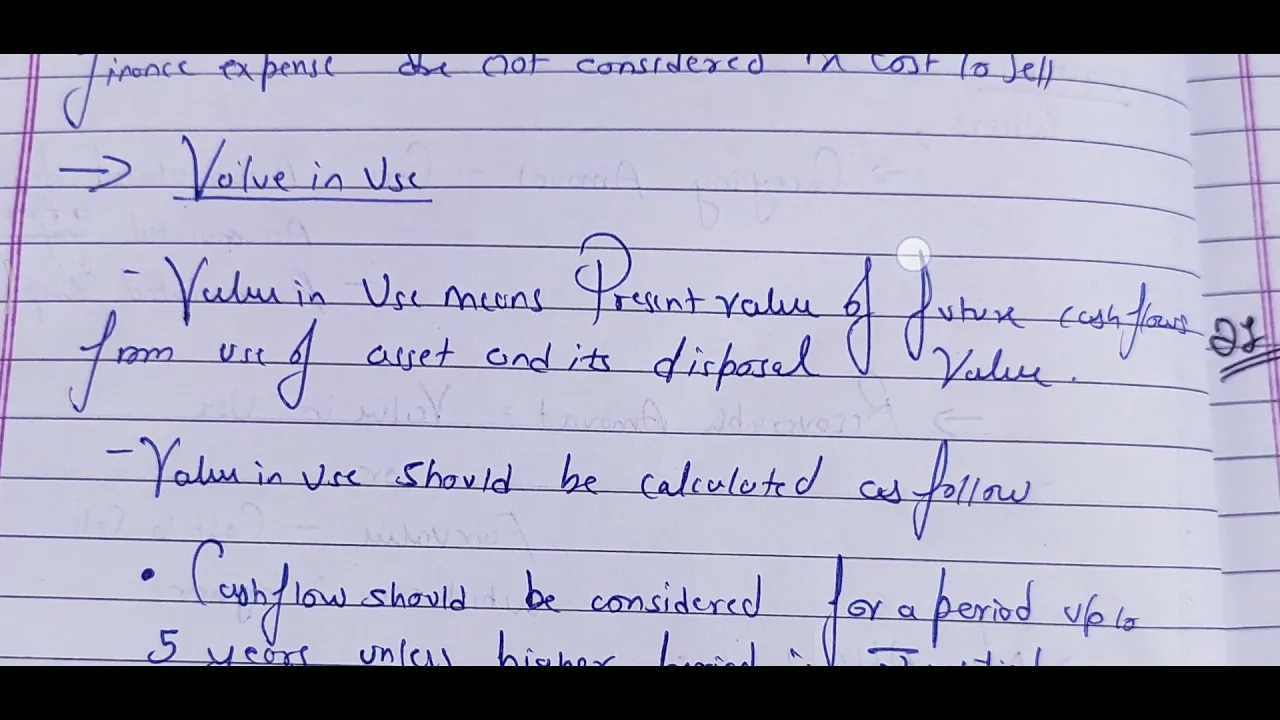 finance expense are not considered in cost to sell
→ Value in Use
- Value in Use means Present value of future cashflows
from use of asset and its disposal Value.
- Value in use should be calculated as follow
• Cashflow should be considered for a period upto
5 years unless higher period is